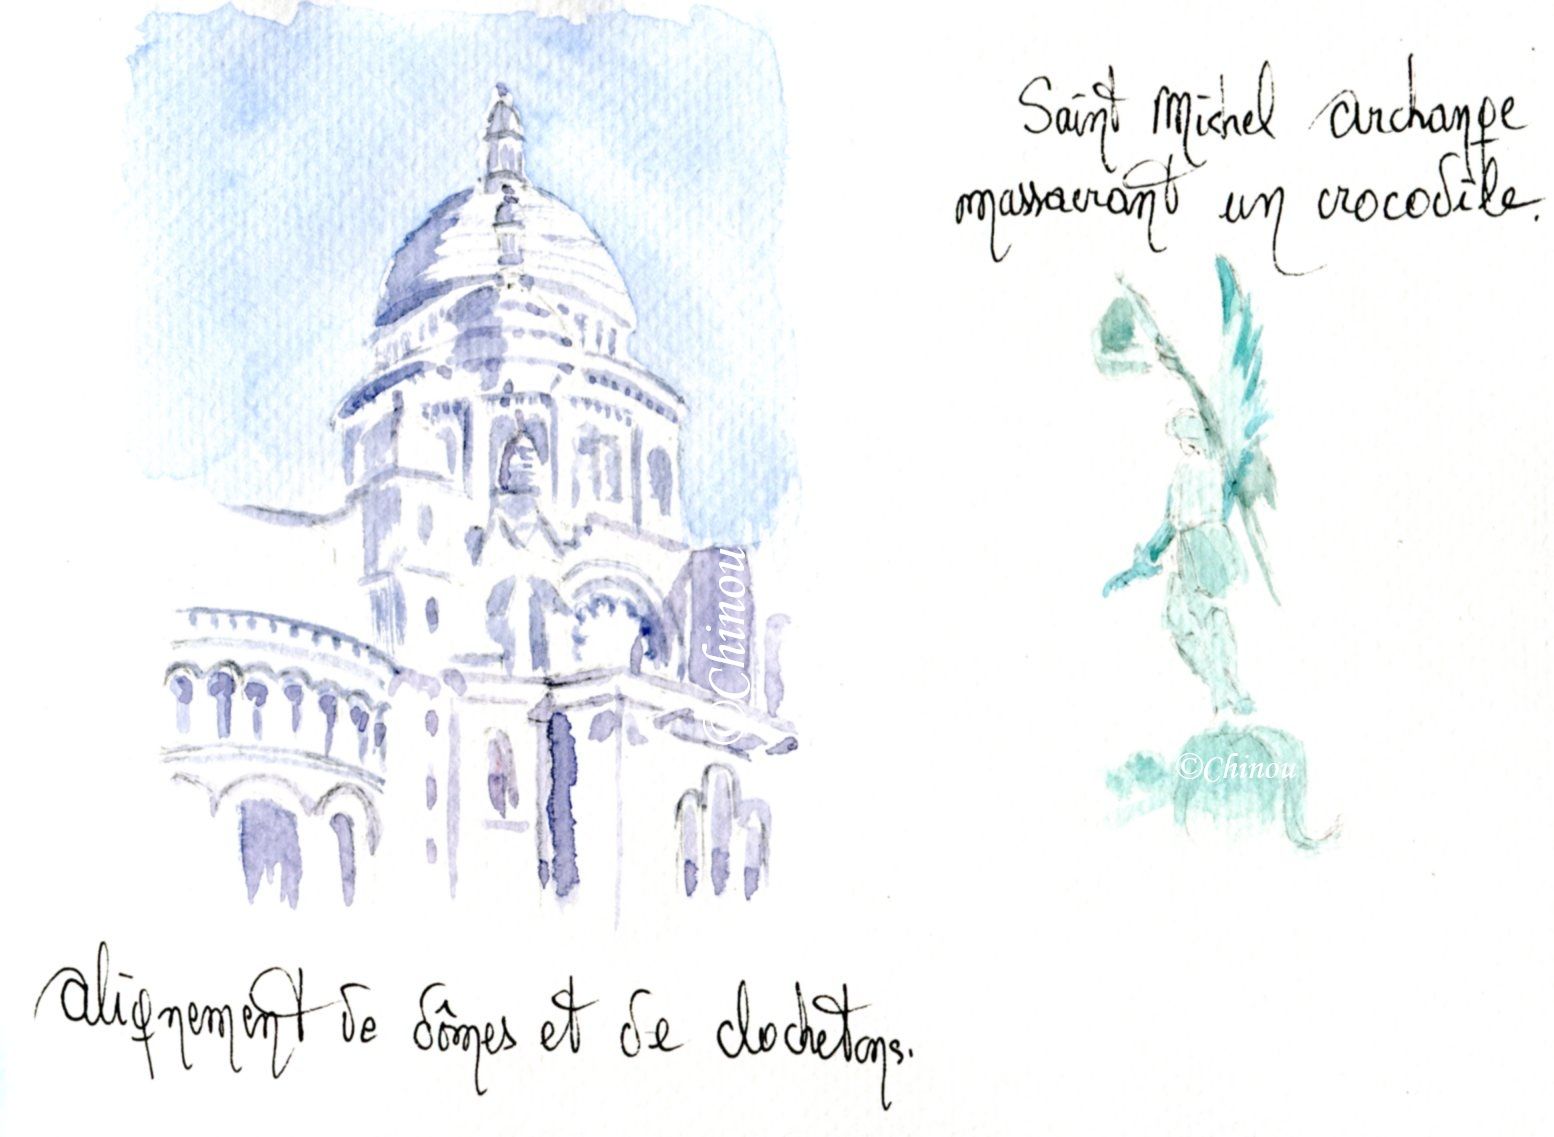 Saint Michel Archange
massacrant un crocodile.
©Chinou
©Chinou
Alignement de dômes et de clochetons.